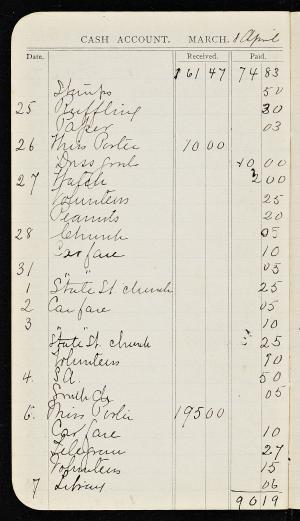 CASH ACCOUNT. MARCH. & April
Date. Received. Paid.
$61 47 74 83
Stamps 50
25 Ruffling 30
Paper 03
26 Miss Porter 10 00
Dress goods 10 00
27 Watch 2 00
Volunteers 25
Peanuts 20
28 Church 05
Car fare 10
31 " " 05
1 State St church 25
2 Car fare 05
3 " " 10
State St. church 25
Volunteers 90
4. S.A. 50
05
6. Miss Porter 195 00
Car fare 10
Telegram 27
Volunteers 15
7 Library 06
90 19